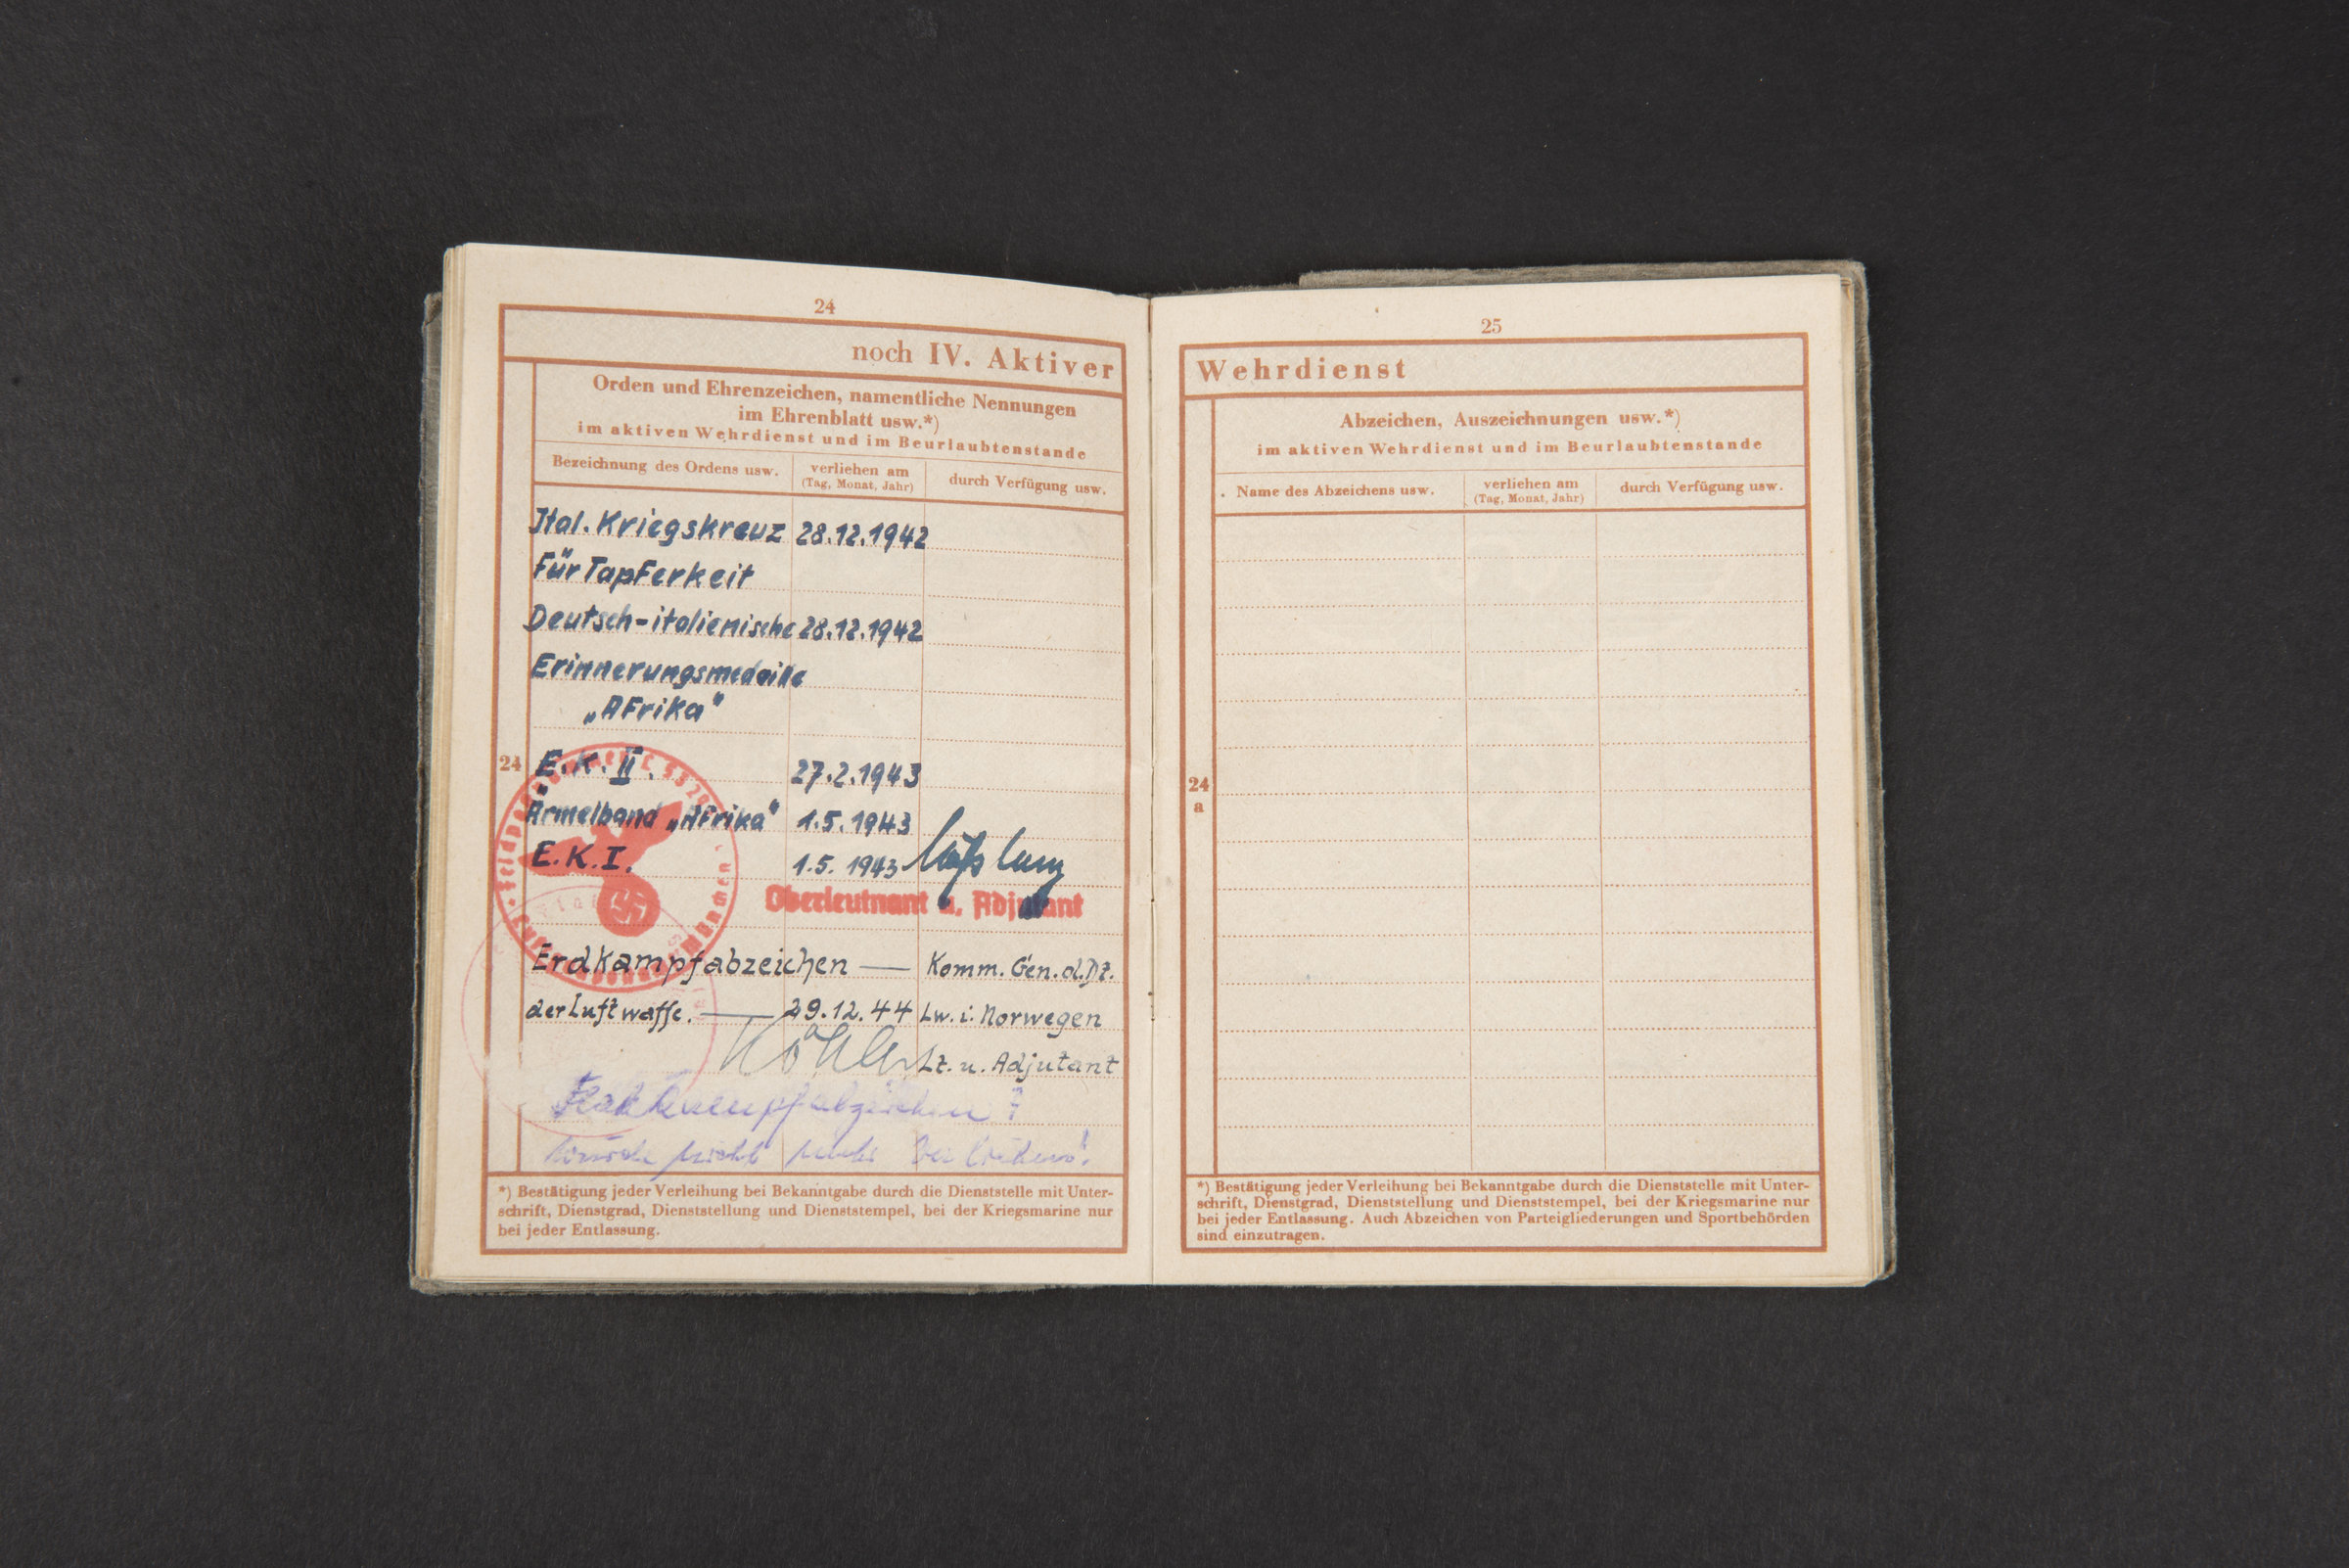 24
noch IV. Aktiver
Orden und Ehrenzeichen, namentliche Nennungen
im Ehrenblatt usw.*)
im aktiven Wehrdienst und im Beurlaubtenstande
Bezeichnung des Ordens usw. verliehen am (Tag, Monat, Jahr) durch Verfügung usw.
Ital. Kriegskreuz 28.12.1942
Für Tapferkeit
Deutsch-italienische 28.12.1942
Erinnerungsmedaille
„Afrika"
24 E.K. II. 27.2.1943
Ärmelband „Afrika" 1.5.1943
E.K. I. 1.5.1943
Oberleutnant u. Adjutant
Erdkampfabzeichen — Komm. Gen. d. Dt.
der Luftwaffe. — 29.12.44 Lw. i. Norwegen
Lt. u. Adjutant
Flak Kampfabzeichen
wurde nicht mehr verliehen!
*) Bestätigung jeder Verleihung bei Bekanntgabe durch die Dienststelle mit Unter-
schrift, Dienstgrad, Dienststellung und Dienststempel, bei der Kriegsmarine nur
bei jeder Entlassung.
25
Wehrdienst
Abzeichen, Auszeichnungen usw.*)
im aktiven Wehrdienst und im Beurlaubtenstande
Name des Abzeichens usw. verliehen am (Tag, Monat, Jahr) durch Verfügung usw.
24
a
*) Bestätigung jeder Verleihung bei Bekanntgabe durch die Dienststelle mit Unter-
schrift, Dienstgrad, Dienststellung und Dienststempel, bei der Kriegsmarine nur
bei jeder Entlassung. Auch Abzeichen von Parteigliederungen und Sportbehörden
sind einzutragen.